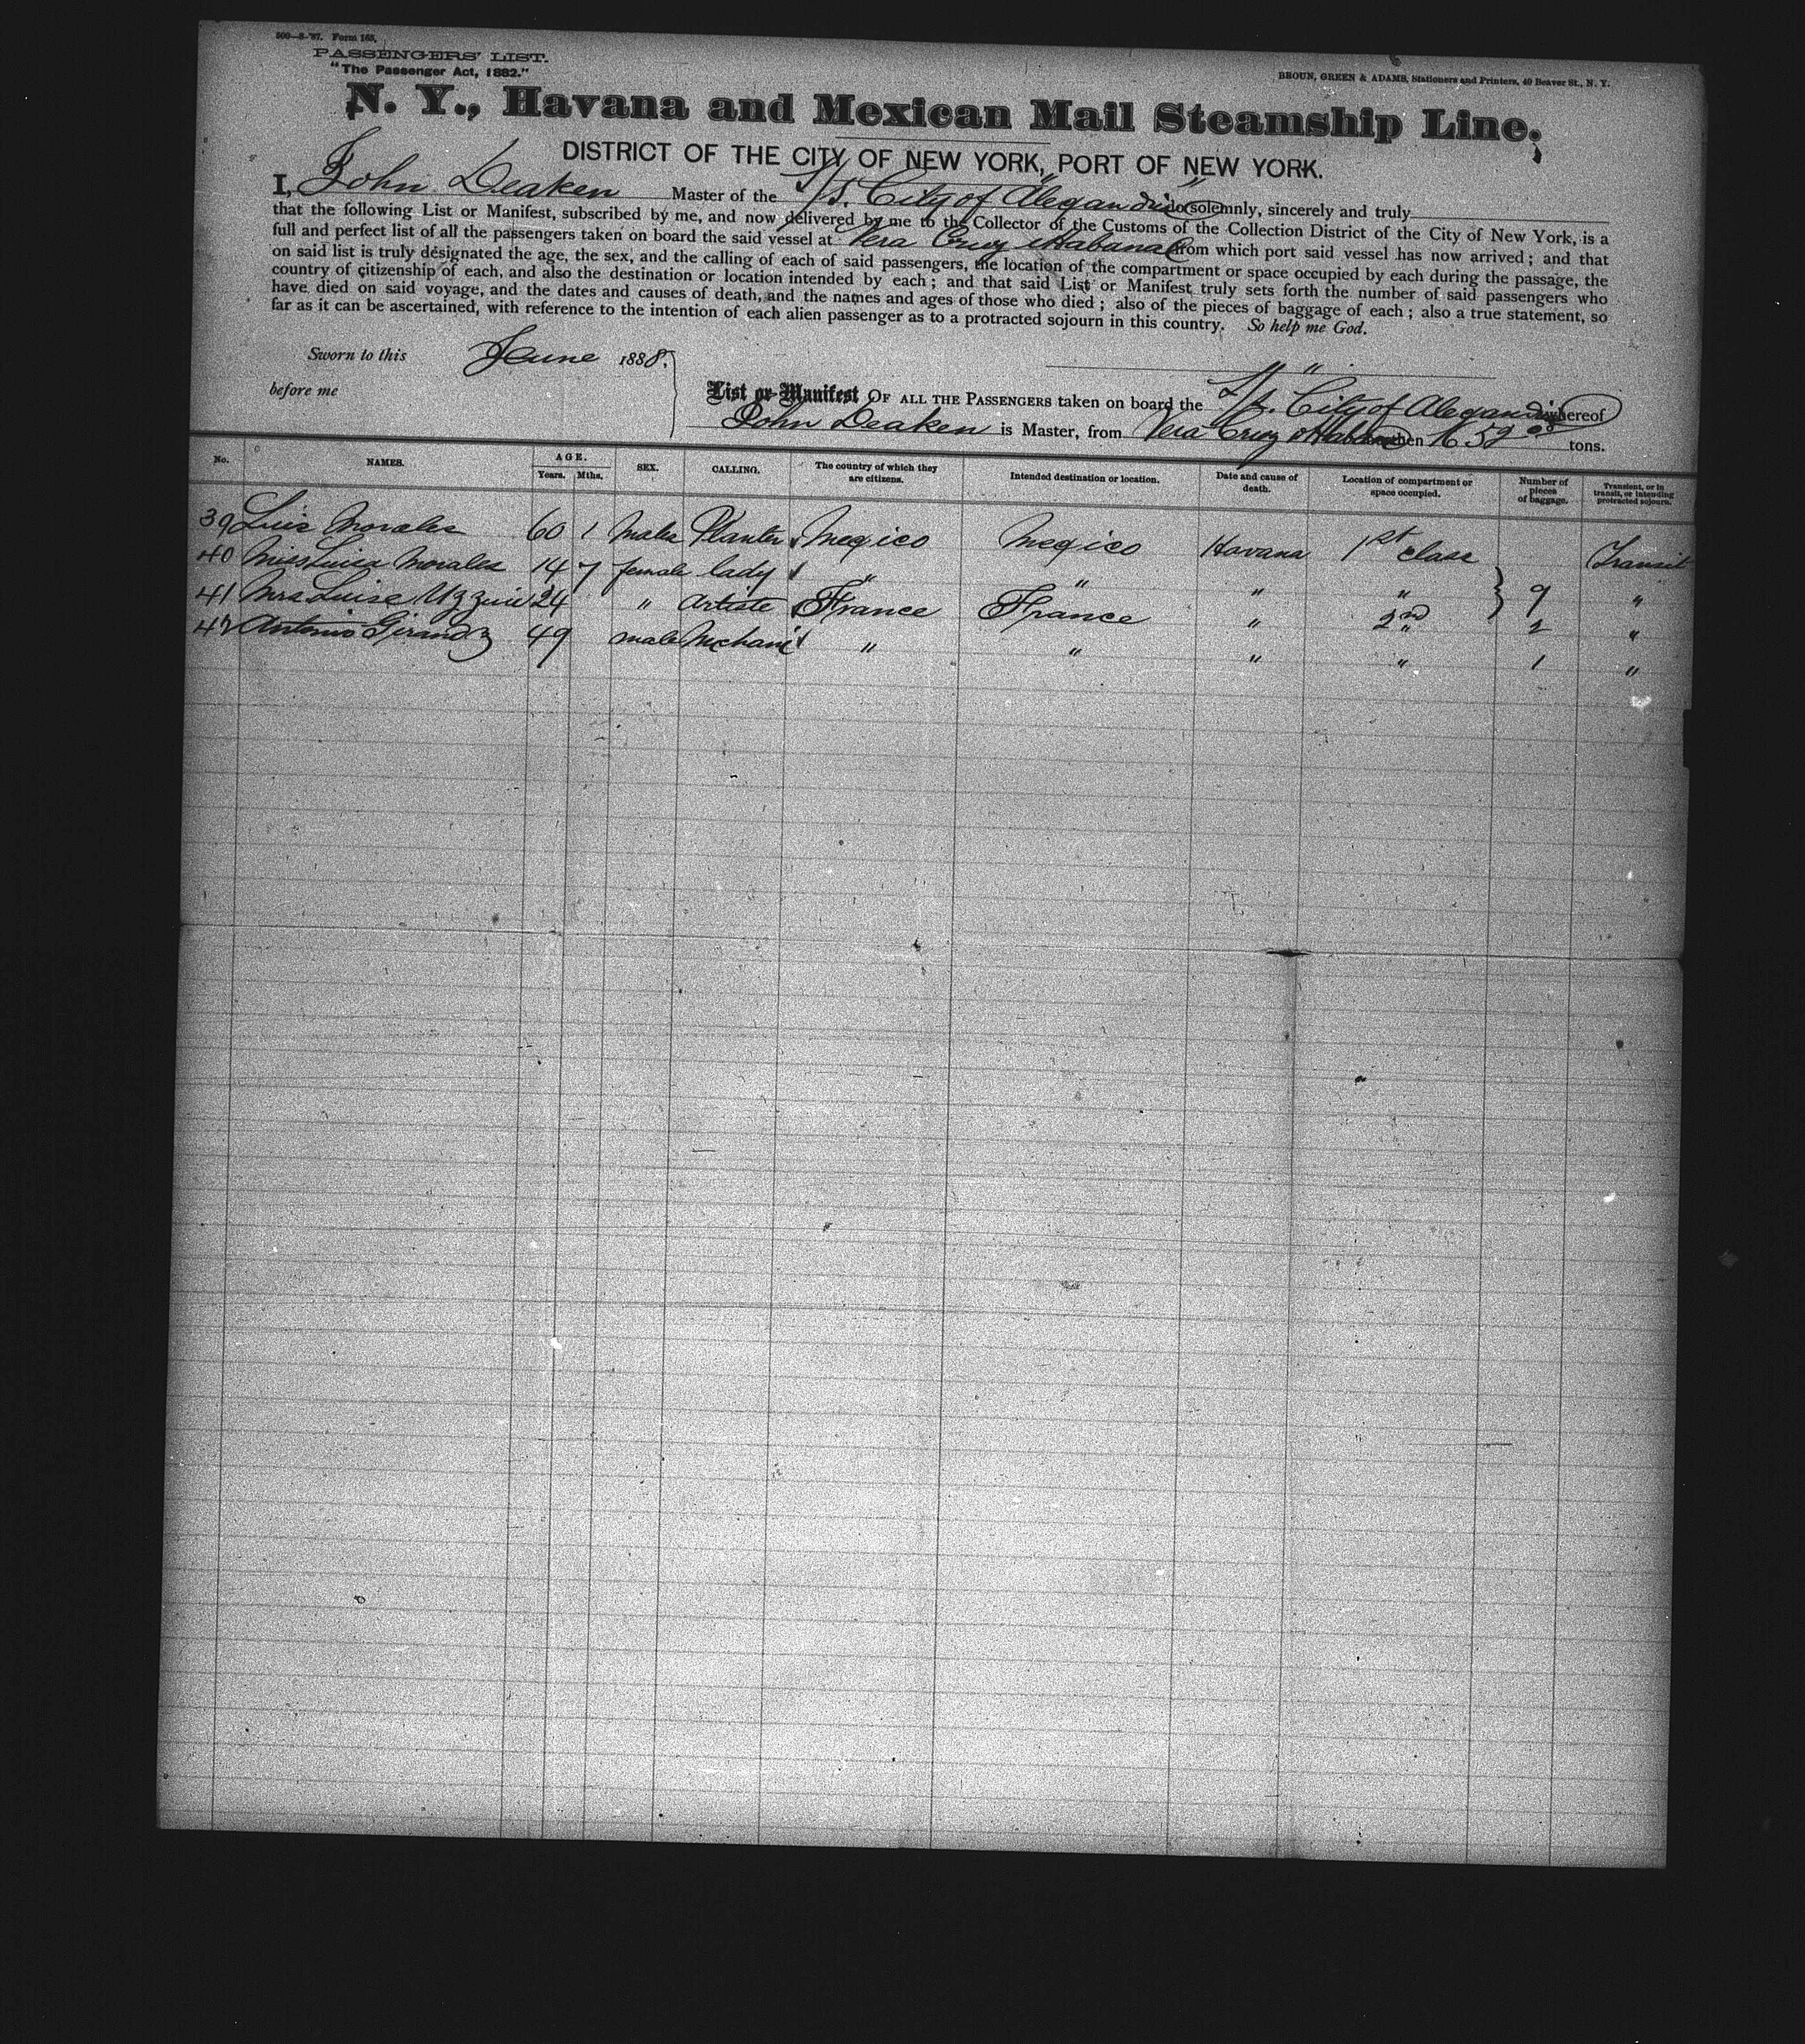 500—8-'87. Form 165.
PASSENGERS' LIST.
"The Passenger Act, 1882."
BROUN, GREEN & ADAMS, Stationers and Printers, 40 Beaver St., N. Y.
N. Y., Havana and Mexican Mail Steamship Line,
DISTRICT OF THE CITY OF NEW YORK, PORT OF NEW YORK.
I, John Deaken Master of the S/S. "City of Alegandria" do solemnly, sincerely and truly
that the following List or Manifest, subscribed by me, and now delivered by me to the Collector of the Customs of the Collection District of the City of New York, is a
full and perfect list of all the passengers taken on board the said vessel at Vera Cruz & Habana from which port said vessel has now arrived; and that
on said list is truly designated the age, the sex, and the calling of each of said passengers, the location of the compartment or space occupied by each during the passage, the
country of citizenship of each, and also the destination or location intended by each; and that said List or Manifest truly sets forth the number of said passengers who
have died on said voyage, and the dates and causes of death, and the names and ages of those who died; also of the pieces of baggage of each; also a true statement, so
far as it can be ascertained, with reference to the intention of each alien passenger as to a protracted sojourn in this country. So help me God.
Sworn to this June 1888.
before me
List or Manifest OF ALL THE PASSENGERS taken on board the S/S. "City of Alegandria" whereof
John Deaken is Master, from Vera Cruz & Habana burthen 1652 00 tons.
No. NAMES. AGE. Years. Mths. SEX. CALLING. The country of which they are citizens. Intended destination or location. Date and cause of death. Location of compartment or space occupied. Number of pieces of baggage. Transient, or in transit, or intending protracted sojourn.
39 Luis Morales 60 1 male Planter Megico Megico Havana 1st class Transit
40 Miss Luisa Morales 14 7 female lady " " " " } 9 "
41 Mrs Luise 24 " Artiste France France " 2nd 2 "
42 Antonio 49 male Mechanic " " " " 1 "